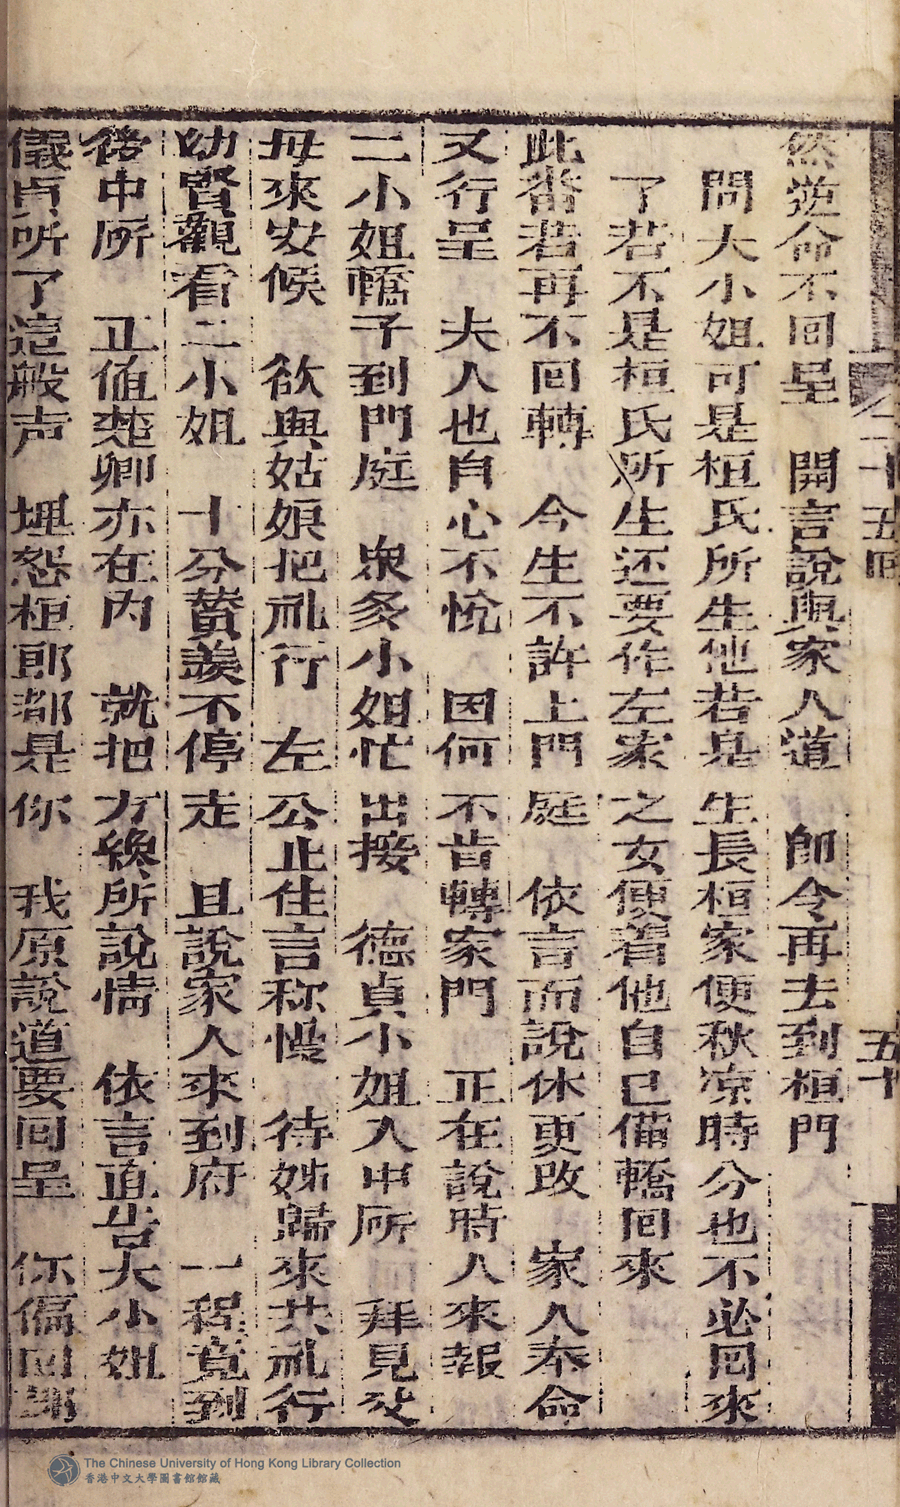 二十五回　五十
然逆命不回呈　開言說與家人道　師令再去到桓門
問大小姐可是桓氏所生他若是生長桓家便秋凉時分也不必回來
了若不是桓氏所生还要作左家之女便着他自己備轎回來
此番若再不回轉　今生不許上門庭　依言而說休更改　家人奉命
又行呈　夫人也自心不悅　因何不肯轉家門　正在說時人來報
二小姐轎子到門庭　衆多小姐忙出接　德貞小姐入中厛　拜見父
母來安候　欲與姑娘把礼行　左公止住言称慢　待姊歸來共礼行
幼賢觀看二小姐　十分賛羡不停走　且說家人來到府　一程竟到
後中厛　正值楚卿亦在內　就把方纔所說情　依言直告大小姐
儀貞听了這般声　埋怨桓郎都是你　我原說道要回呈　你偏回
The Chinese University of Hong Kong Library Collection
香港中文大學圖書館館藏